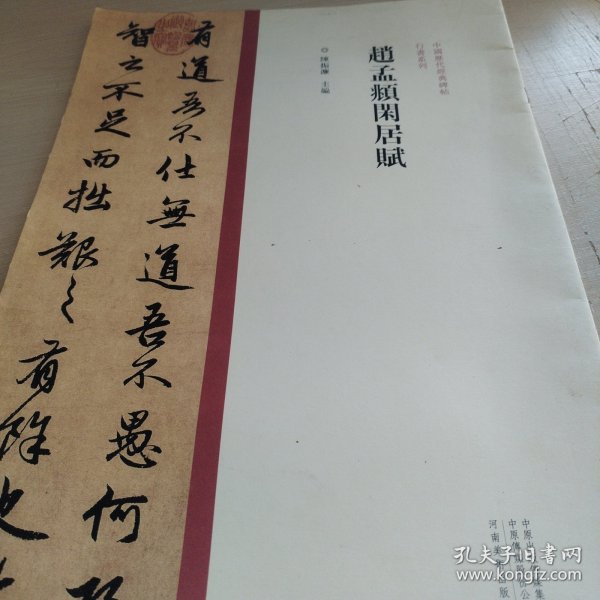 中國歷代經典碑帖
行書系列
趙孟頫閑居賦
◎陳振濂 主編
有道吾不仕無道吾不愚何
智之不足而拙艱之有餘也
中原出
集
中原傳
公
河南美
出版
孔夫子旧书网
www.kongfz.com